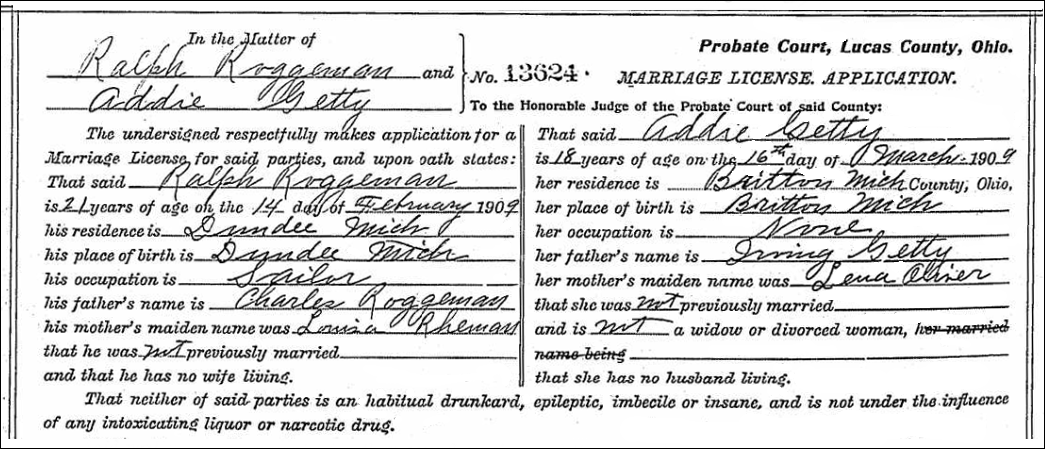 In the Matter of
Ralph Roggeman and
Addie Getty
No. 13624.
Probate Court, Lucas County, Ohio.
MARRIAGE LICENSE APPLICATION.
To the Honorable Judge of the Probate Court of said County:
The undersigned respectfully makes application for a
Marriage License for said parties, and upon oath states:
That said Ralph Roggeman
is 21 years of age on the 14 day of February 1909
his residence is Dundee Mich
his place of birth is Dundee Mich
his occupation is Sailor
his father's name is Charles Roggeman
his mother's maiden name was Louisa Rheman
that he was not previously married
and that he has no wife living.
That said Addie Getty
is 18 years of age on the 16th day of March 1909
her residence is Britton Mich County, Ohio,
her place of birth is Britton Mich
her occupation is None
her father's name is Irving Getty
her mother's maiden name was Lena Oliver
that she was not previously married
and is not a widow or divorced woman, her married
name being
that she has no husband living.
That neither of said parties is an habitual drunkard, epileptic, imbecile or insane, and is not under the influence
of any intoxicating liquor or narcotic drug.